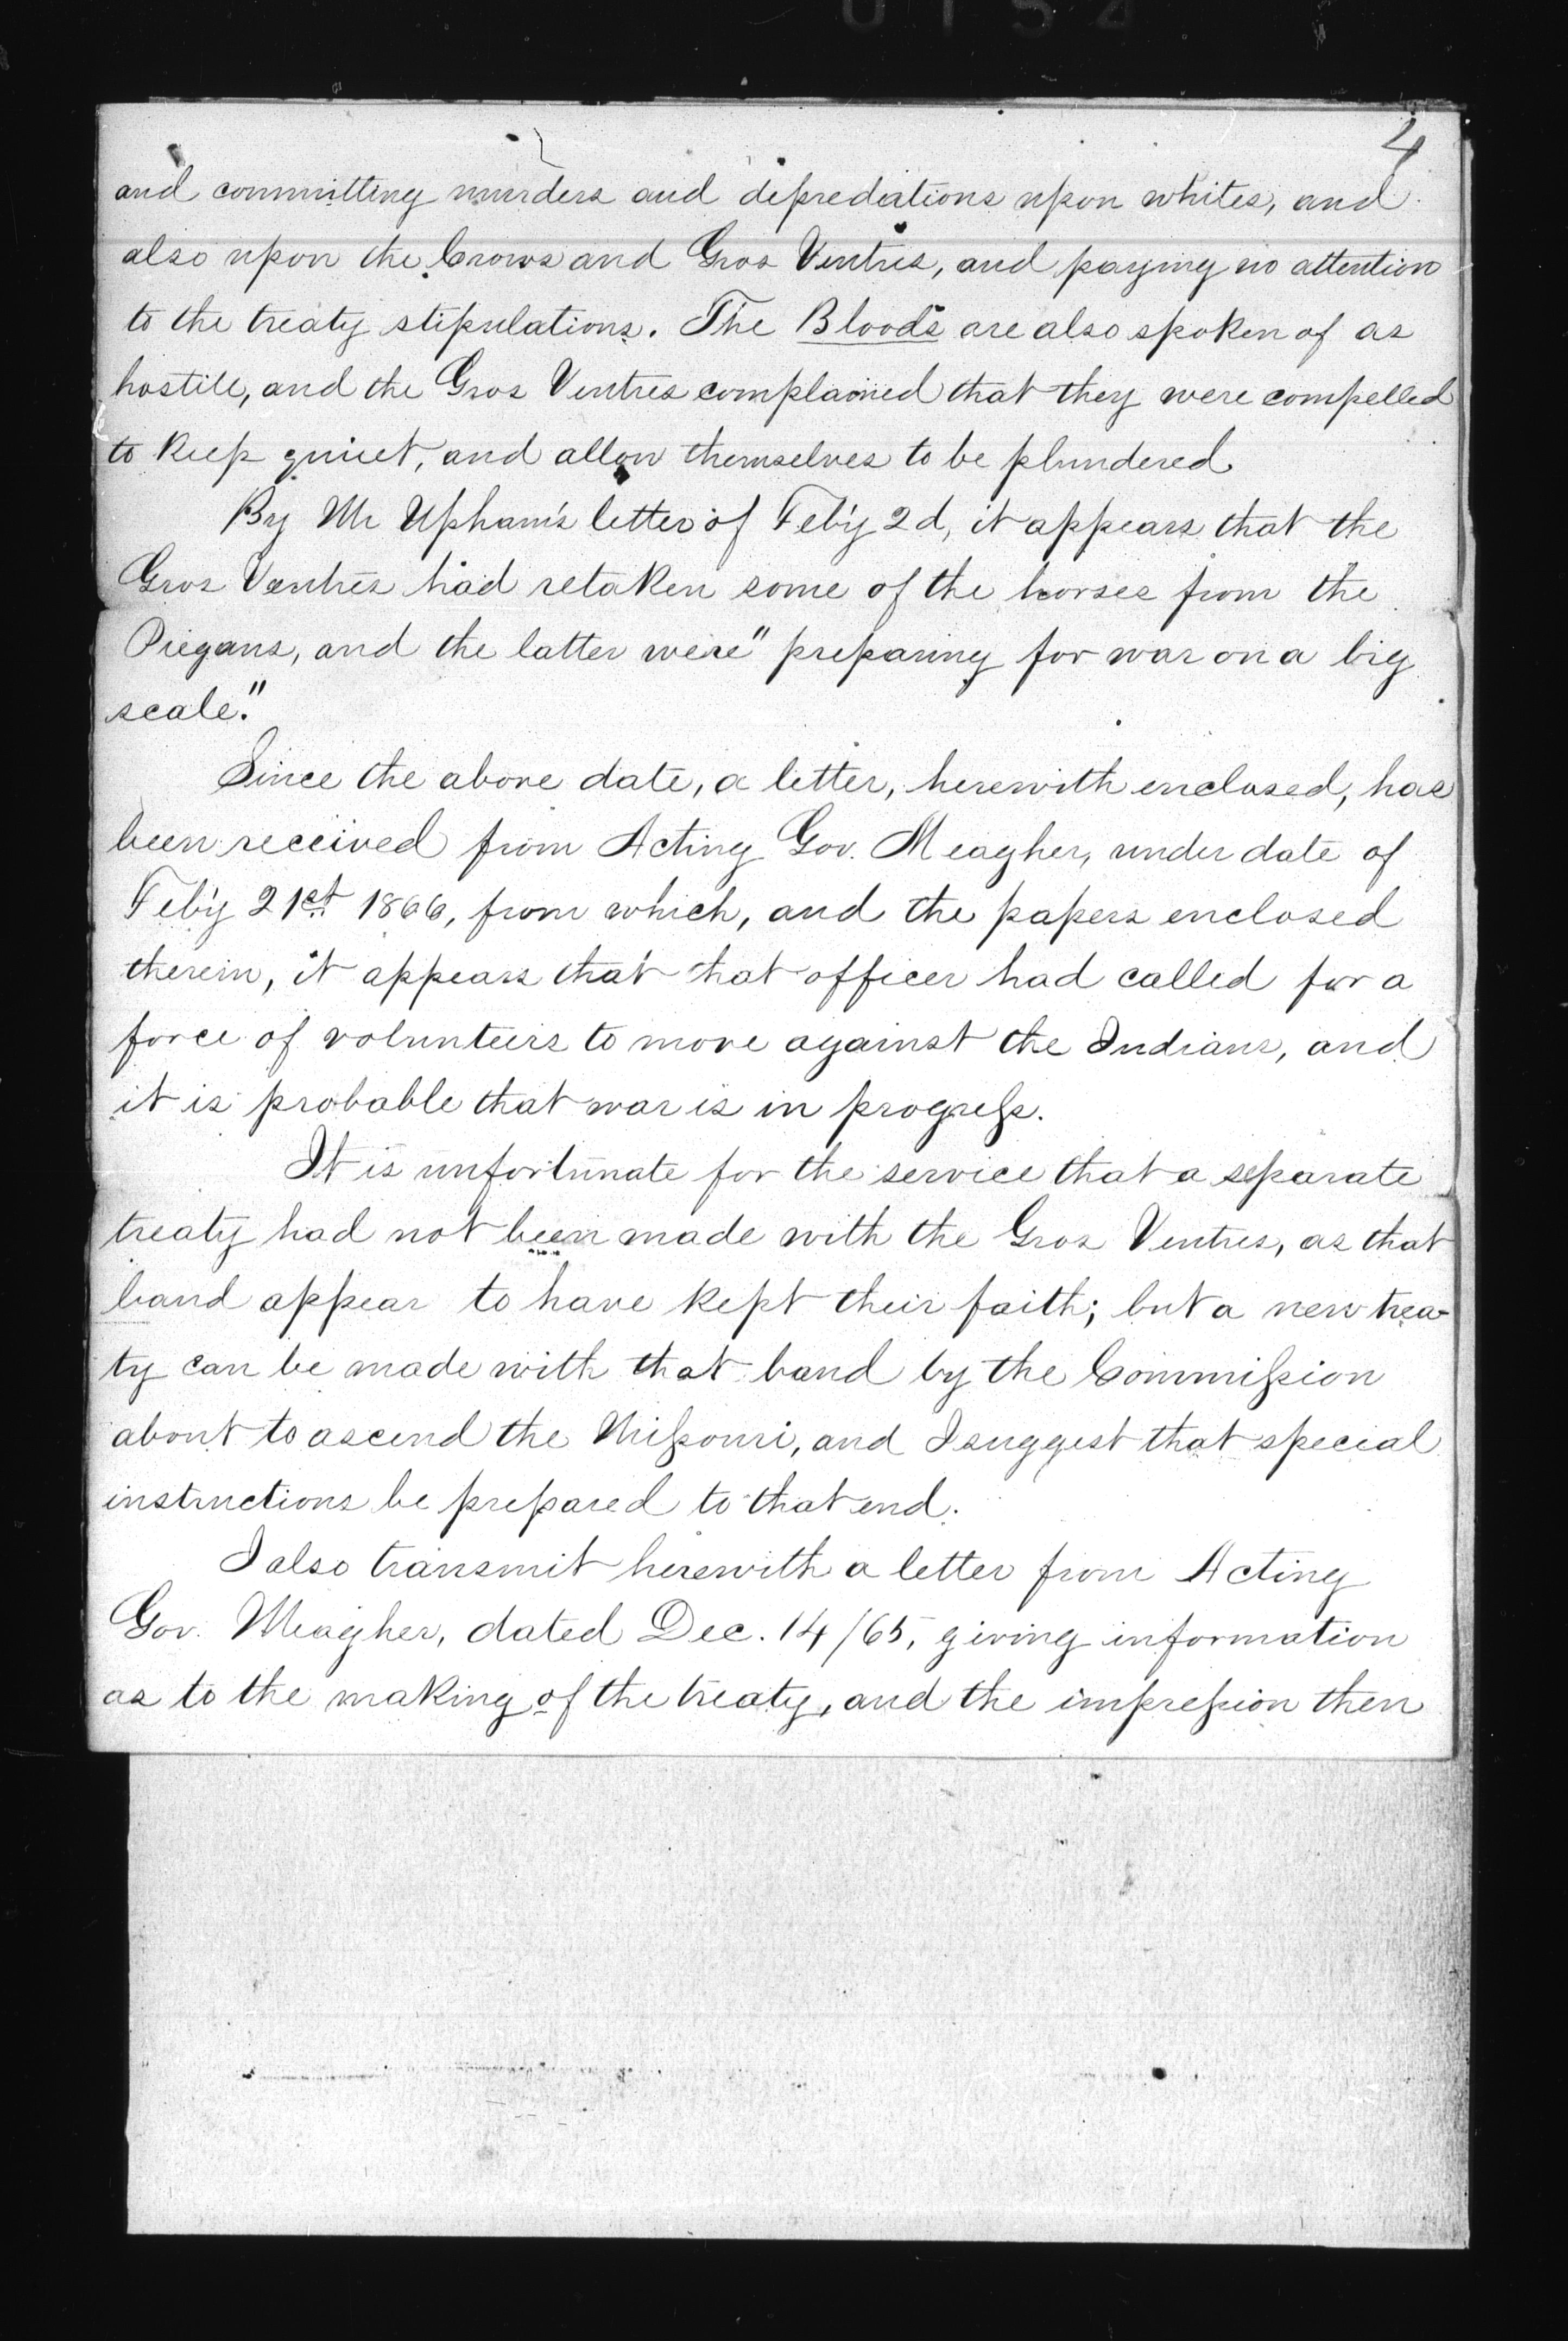 4
and committing murders and depredations upon whites, and
also upon the Crows and Gros Ventres, and paying no attention
to the treaty stipulations. The Bloods are also spoken of as
hostile, and the Gros Ventres complained that they were compelled
to keep quiet, and allow themselves to be plundered
By Mr Upham's letter of Feb'y 2d, it appears that the
Gros Ventres had retaken some of the horses from the
Piegans, and the latter were "preparing for war on a big
scale."
Since the above date, a letter, herewith enclosed, has
been received from Acting Gov. Meagher, under date of
Feb'y 21st 1866, from which, and the papers enclosed
therein, it appears that that officer had called for a
force of volunteers to move against the Indians, and
it is probable that war is in progress.
It is unfortunate for the service that a separate
treaty had not been made with the Gros Ventres, as that
band appear to have kept their faith; but a new trea-
ty can be made with that band by the Commission
about to ascend the Missouri, and I suggest that special
instructions be prepared to that end.
I also transmit herewith a letter from Acting
Gov. Meagher, dated Dec. 14/65, giving information
as to the making of the treaty, and the impression then